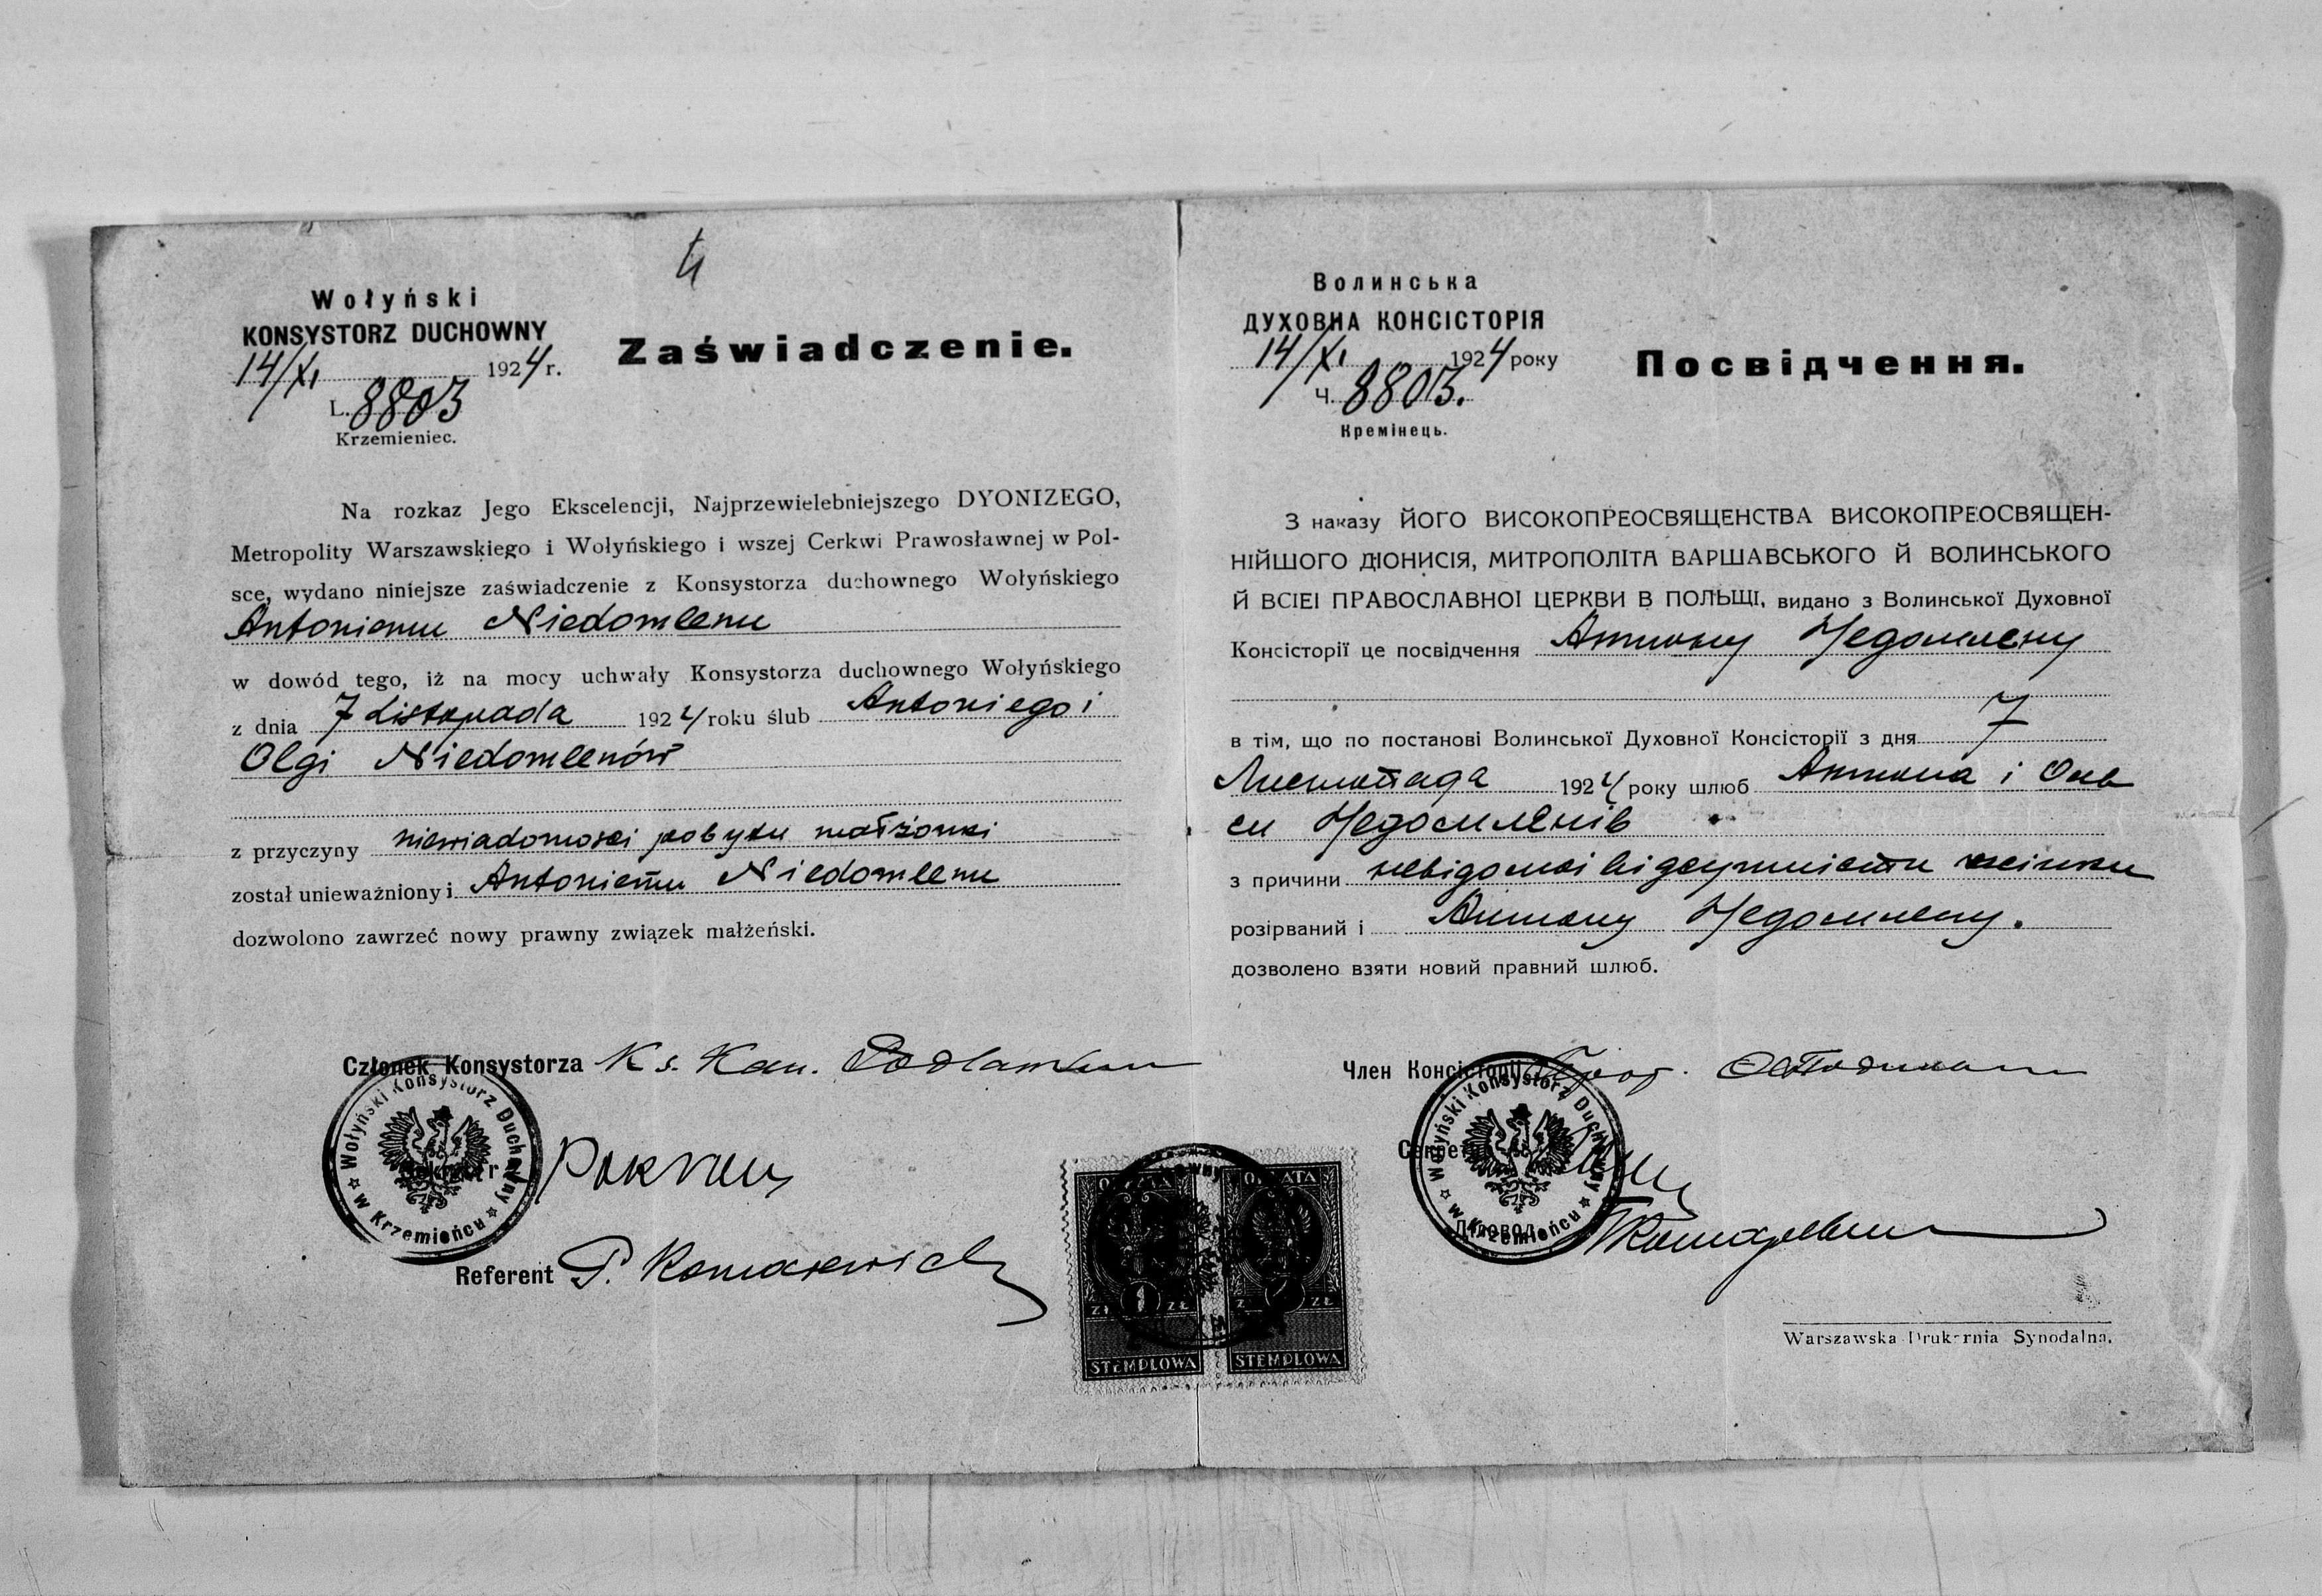 4
Wołyński
KONSYSTORZ DUCHOWNY
14/XI 1924 r.
L. 8803
Krzemieniec.
Zaświadczenie.
Na rozkaz Jego Ekscelencji, Najprzewielebniejszego DYONIZEGO,
Metropolity Warszawskiego i Wołyńskiego i wszej Cerkwi Prawosławnej w Pol-
sce, wydano niniejsze zaświadczenie z Konsystorza duchownego Wołyńskiego
Antoniemu Niedomlenu
w dowód tego, iż na mocy uchwały Konsystorza duchownego Wołyńskiego
z dnia 7 Listopada 1924 roku ślub Antoniego i
Olgi Niedomlenów
z przyczyny niewiadomości pobytu małżonki
został unieważniony i Antoniemu Niedomlenu
dozwolono zawrzeć nowy prawny związek małżeński.
Członek Konsystorza Ks. Kan.
Sekretarz
Referent P.
Wołyński Konsystorz Duchowny w Krzemieńcu
Волинська
ДУХОВНА КОНСІСТОРІЯ
14/XI 1924 року
Ч. 8803.
Кремінець.
Посвідчення.
З наказу ЙОГО ВИСОКОПРЕОСВЯЩЕНСТВА ВИСОКОПРЕОСВЯЩЕН-
НІЙШОГО ДІОНИСІЯ, МИТРОПОЛІТА ВАРШАВСЬКОГО Й ВОЛИНСЬКОГО
Й ВСІЕІ ПРАВОСЛАВНОІ ЦЕРКВИ В ПОЛЬЩІ, видано з Волинської Духовної
Консісторії це посвідчення Антону Недомлену
в тім, що по постанові Волинської Духовної Консісторії з дня 7
Листопада 1924 року шлюб Антона і Оль
ги Недомленів
з причини невідомої відсутности жінки
розірваний і Антону Недомлену.
дозволено взяти новий правний шлюб.
Член Консісторії
Секрет
Діловод
Wołyński Konsystorz Duchowny w Krzemieńcu
OPŁATA OPŁATA
ZŁ 1 ZŁ ZŁ
STEMPLOWA STEMPLOWA
Warszawska Drukarnia Synodalna.